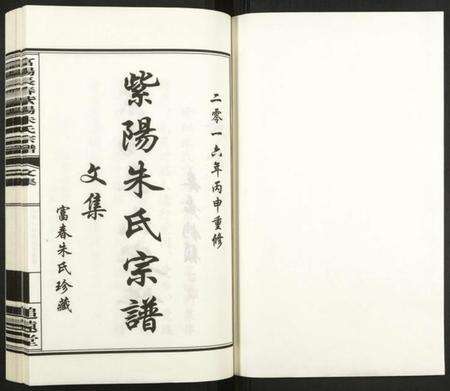 二零一六年丙申重修
紫陽朱氏宗譜
文集
富春朱氏珍藏
文集
追遠堂